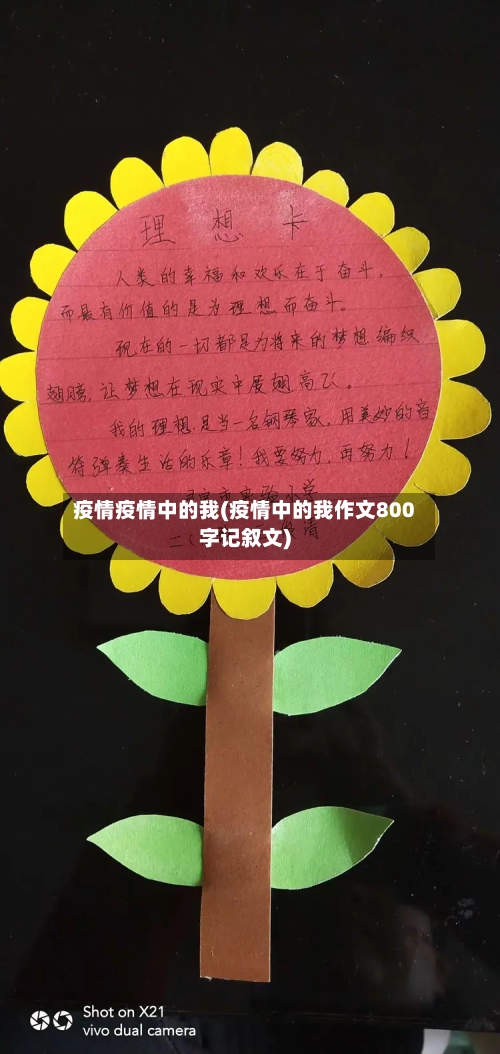 理想卡
人类的幸福和欢乐在于奋斗，
而最有价值的是为理想而奋斗。
现在的一切都是为将来的梦想编织
翅膀，让梦想在现实中展翅高飞。
我的理想是当一名钢琴家，用美妙的音
符弹奏生活的乐章！我要努力，再努力！
疫情疫情中的我(疫情中的我作文800
字记叙文)
Shot on X21
vivo dual camera